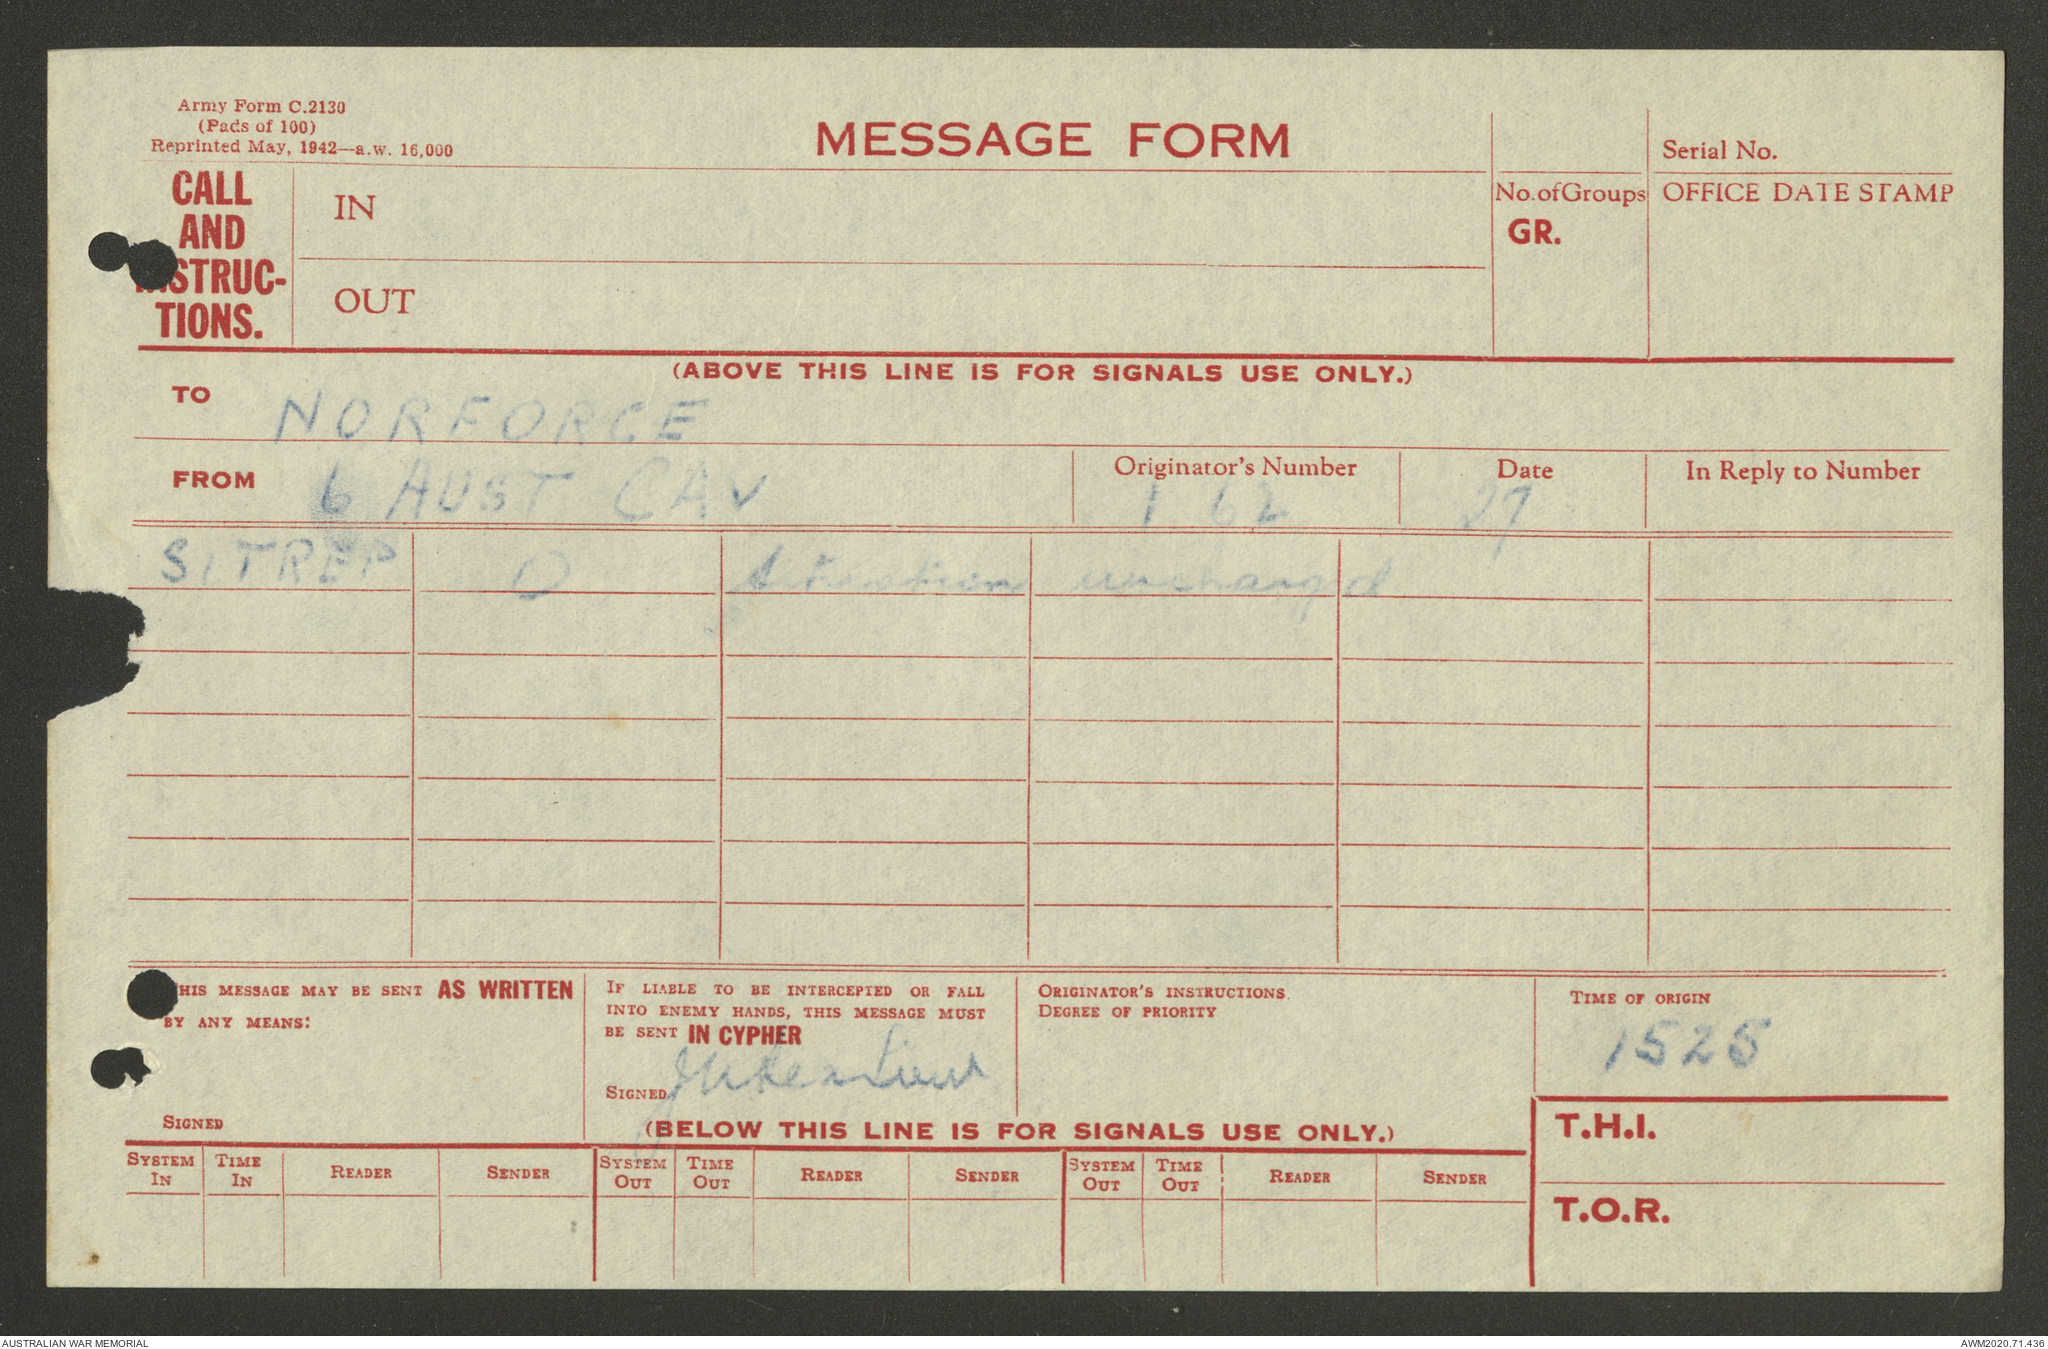 Army Form C.2130
(Pads of 100)
Reprinted May, 1942—a.w. 16,000
MESSAGE FORM
Serial No.
CALL
AND
INSTRUC-
TIONS.
IN
OUT
No. of Groups
GR.
OFFICE DATE STAMP
(ABOVE THIS LINE IS FOR SIGNALS USE ONLY.)
TO NORFORCE
FROM 6 AUST CAV
Originator's Number
I 62
Date
29
In Reply to Number
SITREP O Situation unchangd
THIS MESSAGE MAY BE SENT AS WRITTEN
BY ANY MEANS:
SIGNED
IF LIABLE TO BE INTERCEPTED OR FALL
INTO ENEMY HANDS, THIS MESSAGE MUST
BE SENT IN CYPHER
SIGNED Lieut
ORIGINATOR'S INSTRUCTIONS.
DEGREE OF PRIORITY
TIME OF ORIGIN
1525
T.H.I.
T.O.R.
(BELOW THIS LINE IS FOR SIGNALS USE ONLY.)
SYSTEM IN TIME IN READER SENDER SYSTEM OUT TIME OUT READER SENDER SYSTEM OUT TIME OUT READER SENDER
AUSTRALIAN WAR MEMORIAL
AWM2020.71.436